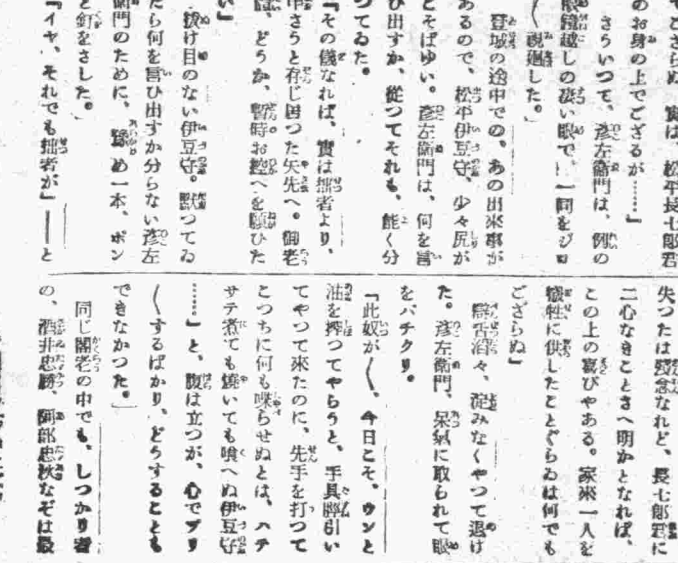 でござらぬ。實は、松平長七郎君
のお身の上でござるが……」
さういつて、彥左衞門は、例の
眼鏡越しの凄い眼で、一同をジロ
〱視廻した。
登城の途中での、あの出來事が
あるので、松平伊豆守、少々尻が
こそばゆい。彥左衞門は、何を言
ひ出すか、從つてそれも、能く分
つてゐた。
「その儀なれば、實は拙者より、
申さうと存じ困つた矢先へ。御老
體、どうか、暫時お控へを願ひた
い」
拔け目のない伊豆守。默つてゐ
たら何を言ひ出すか分らない彥左
衞門のために、豫め一本、ポン
と釘をさした。
「イヤ、それでも拙者が」――と
失つたは殘念なれど、長七郎君に
二心なきことさへ明かとなれば、
この上の喜びやある。家來一人を
犧牲に供したことぐらゐは何でも
ござらぬ」
辯舌滔々、淀みなくやつて退け
た。彥左衞門、呆氣に取られて眼
をパチクリ。
「此奴が〱、今日こそ、ウンと
油を搾つてやらうと、手具脛引い
てやつて來たのに、先手を打つて
こつちに何も喋らせぬとは、ハテ
サテ煮ても燒いても喰へぬ伊豆守
……」と、腹は立つが、心でブリ
〱するばかり、どうすることも
できなかつた。
同じ閣老の中でも、しつかり者
の、酒井忠勝、阿部忠秋なぞは最